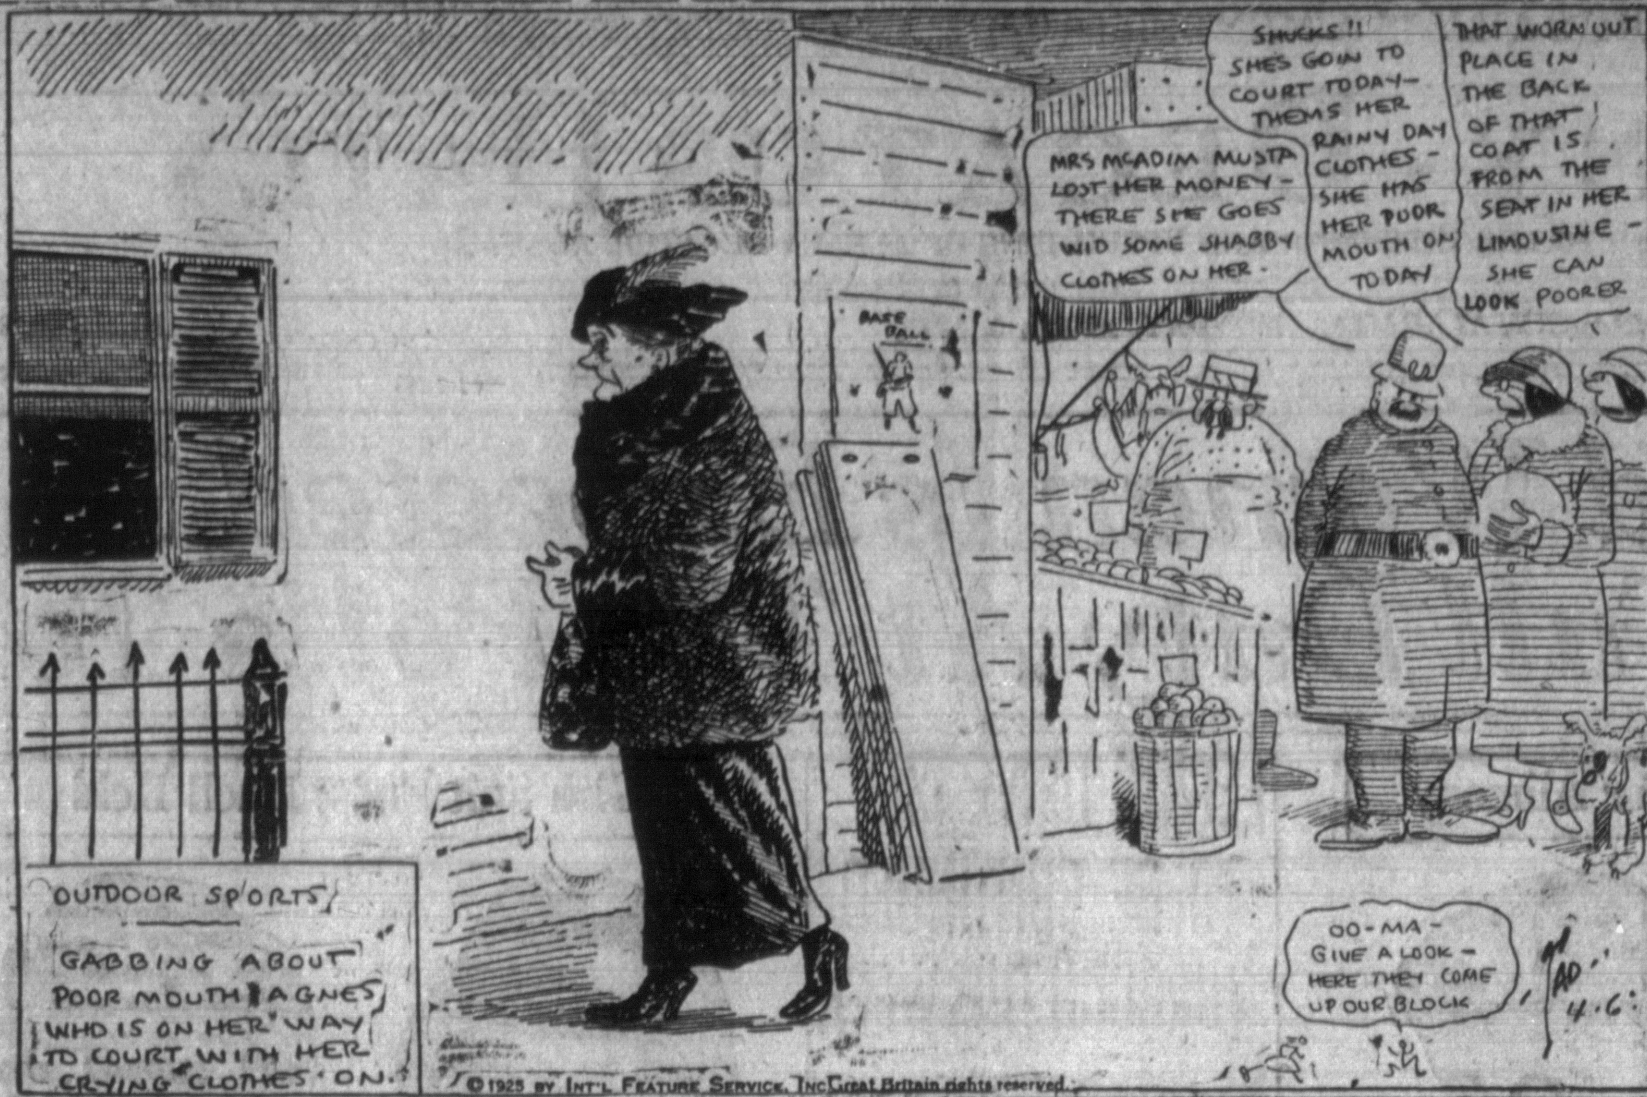 MRS MCADIM MUSTA
LOST HER MONEY -
THERE SHE GOES
WID SOME SHABBY
CLOTHES ON HER.
SHUCKS!!
SHES GOIN TO
COURT TODAY -
THEMS HER
RAINY DAY
CLOTHES -
SHE HAS
HER POOR
MOUTH ON
TODAY
THAT WORN OUT
PLACE IN
THE BACK
OF THAT
COAT IS
FROM THE
SEAT IN HER
LIMOUSINE -
SHE CAN
LOOK POORER
BASE
BALL
OUTDOOR SPORTS
GABBING ABOUT
POOR MOUTH AGNES
WHO IS ON HER WAY
TO COURT WITH HER
"CRYING CLOTHES" ON.
OO-MA-
GIVE A LOOK -
HERE THEY COME
UP OUR BLOCK
TAD
4.6
© 1925 BY INT'L FEATURE SERVICE, INC. Great Britain rights reserved.